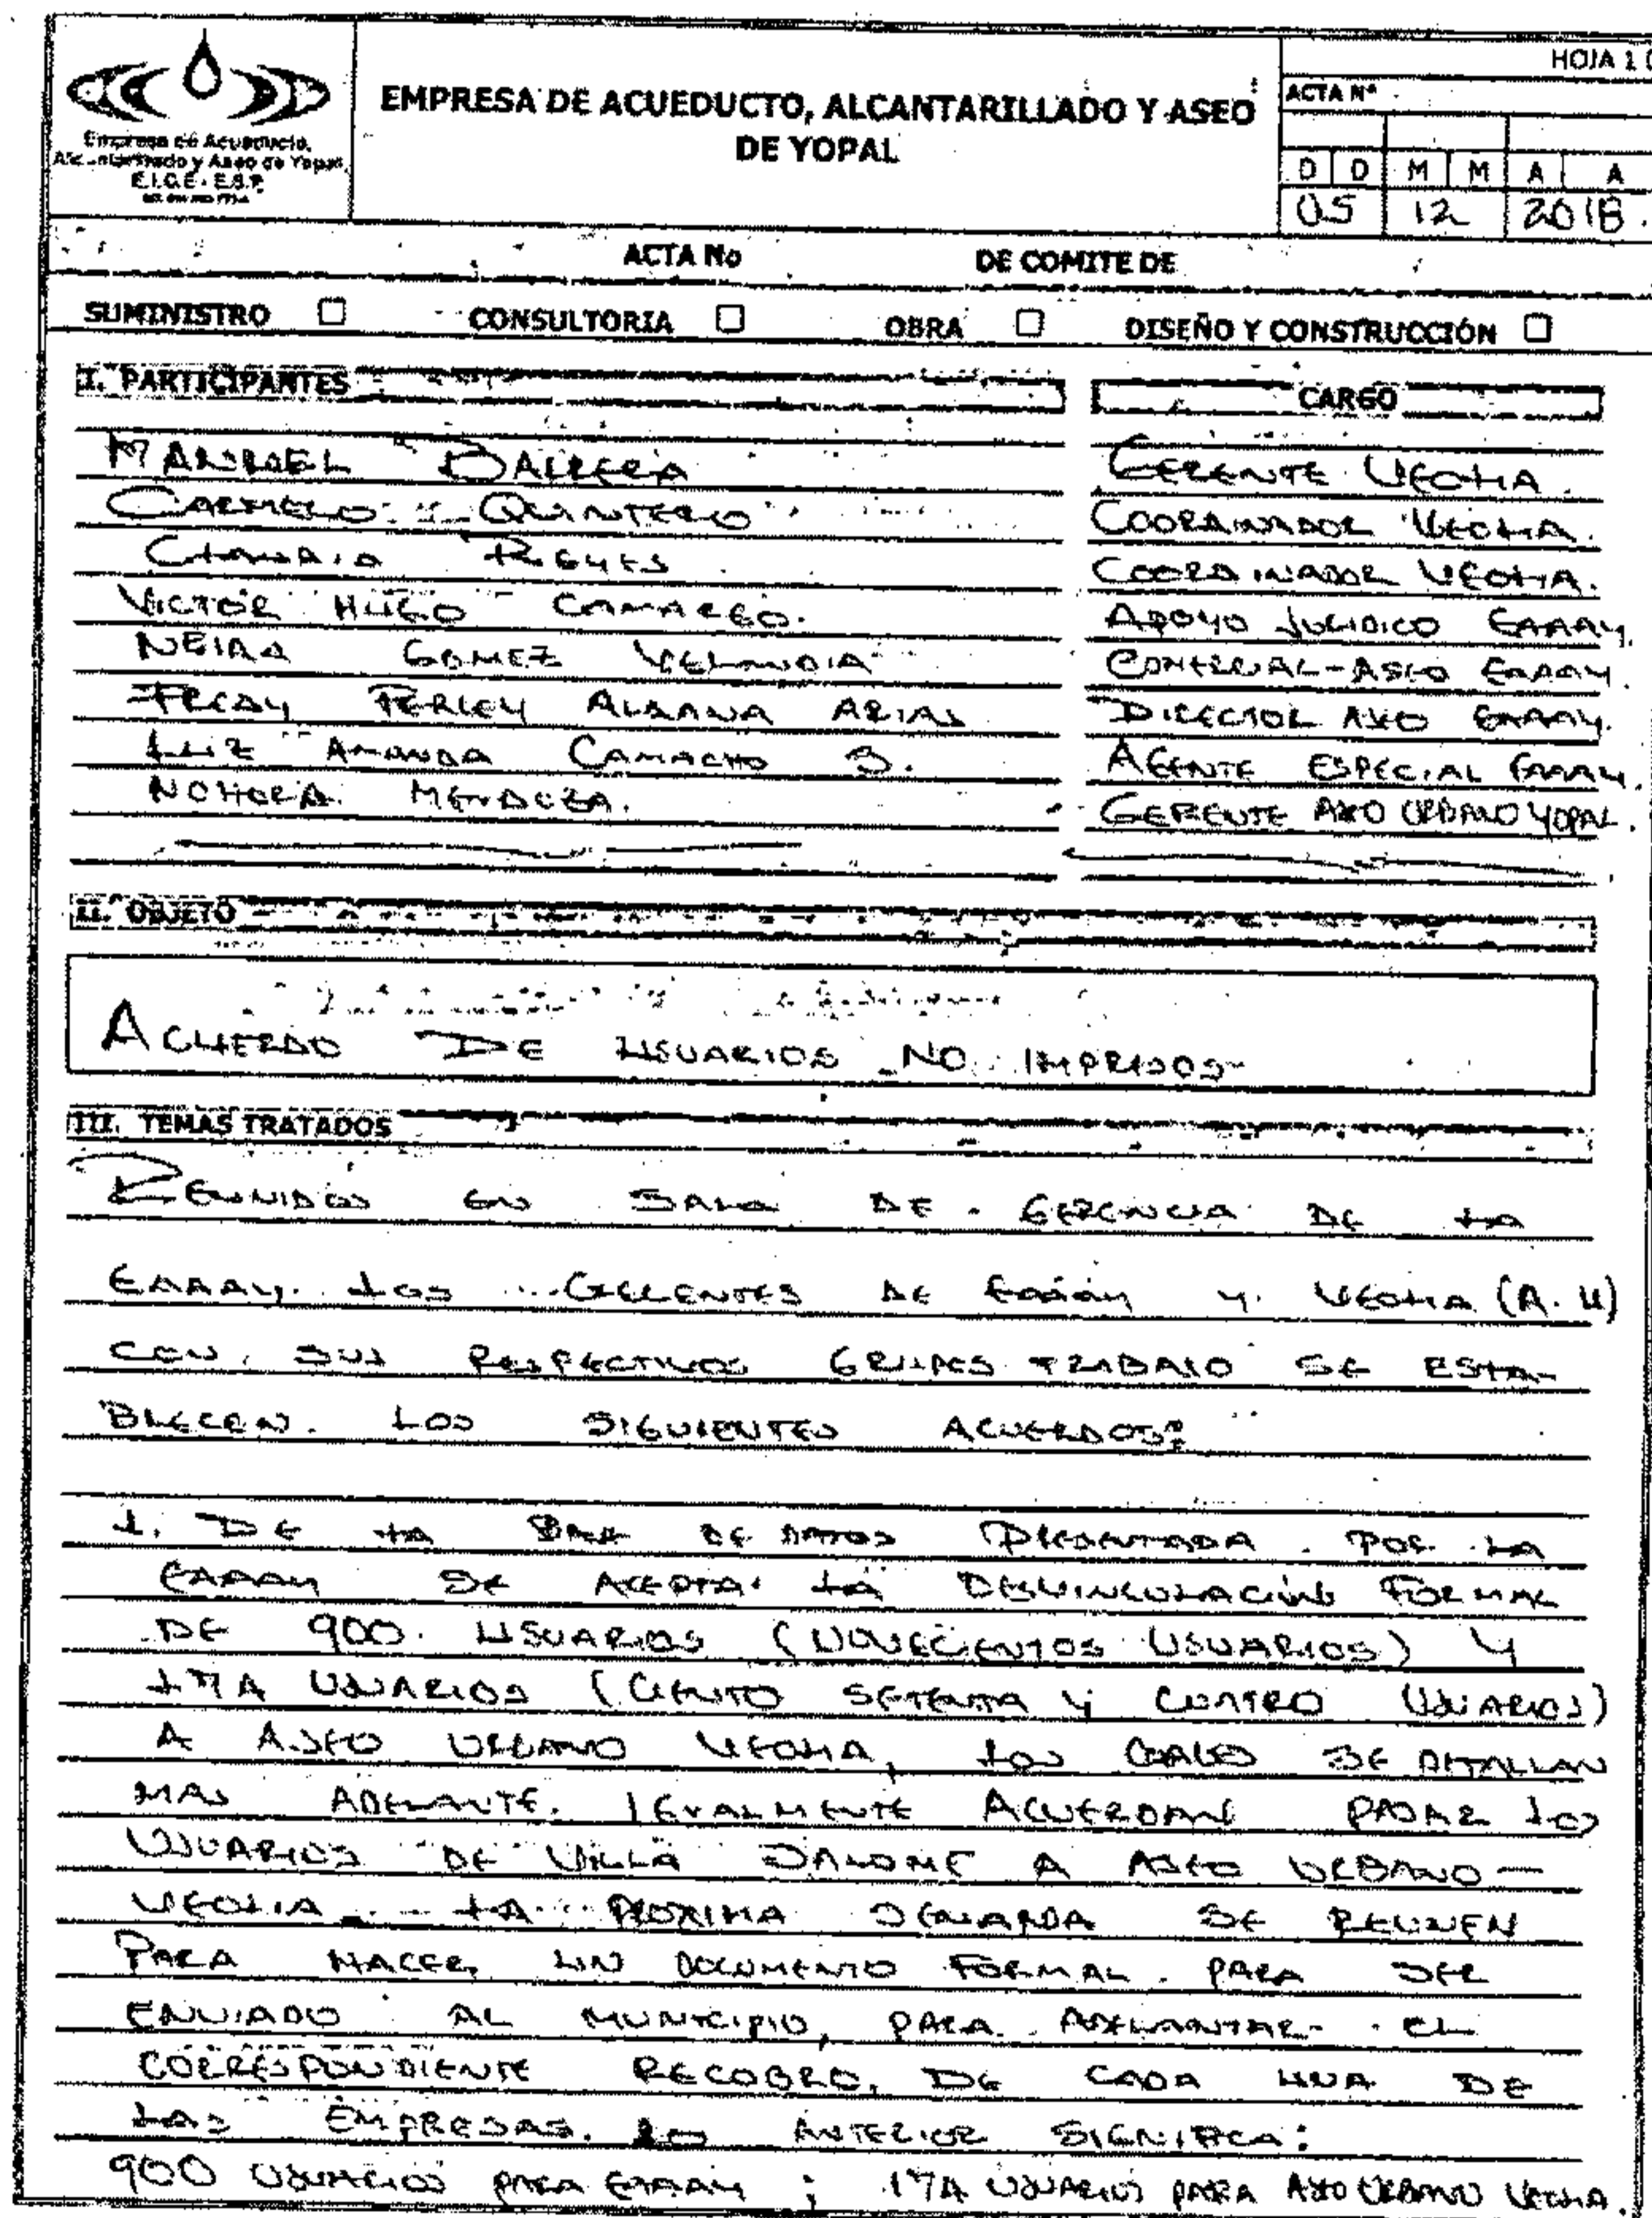 HOJA 1
EMPRESA DE ACUEDUCTO, ALCANTARILLADO Y ASEO
DE YOPAL
ACTA Nº
Empresa de Acueducto,
Alcantarillado y Aseo de Yopal
E.I.C.E - E.S.P
D D M M A A
05 12 2018.
ACTA No DE COMITE DE
SUMINISTRO ☐ CONSULTORIA ☐ OBRA ☐ DISEÑO Y CONSTRUCCIÓN ☐
I. PARTICIPANTES CARGO
MANUEL BARRERA GERENTE VEOLIA.
CARMELO QUINTERO COORDINADOR VEOLIA.
CLAUDIA REYES COORDINADOR VEOLIA.
VICTOR HUGO CAMARGO. APOYO JURIDICO EAAAY.
NEIRA GOMEZ VELANDIA COMERCIAL-ASEO EAAAY.
FREDY FERLEY ALDANA ARIAS DIRECTOR ASEO EAAAY.
LUZ AMANDA CAMACHO S. AGENTE ESPECIAL EAAAY.
NOHORA MENDOZA. GERENTE ASEO URBANO YOPAL.
II. OBJETO
ACUERDO DE USUARIOS NO
III. TEMAS TRATADOS
REUNIDOS EN SALA DE GERENCIA DE LA
EAAAY. LOS GERENTES DE EAAAY Y VEOLIA (A.U)
CON SUS RESPECTIVOS GRUPOS TRABAJO SE ESTA-
BLECEN LOS SIGUIENTES ACUERDOS:
1. DE LA BASE DE DATOS PRESENTADA POR LA
EAAAY SE ACEPTA LA DESVINCULACIÓN FORMAL
DE 900 USUARIOS (NOVECIENTOS USUARIOS) Y
174 USUARIOS (CIENTO SETENTA Y CUATRO USUARIOS)
A ASEO URBANO VEOLIA, LOS CUALES SE DETALLAN
MAS ADELANTE. IGUALMENTE ACUERDAN PASAR LOS
USUARIOS DE VILLA SALOME A ASEO URBANO -
VEOLIA. - LA PROXIMA SEMANA SE REUNEN
PARA HACER UN DOCUMENTO FORMAL PARA SER
ENVIADO AL MUNICIPIO, PARA ADELANTAR EL
CORRESPONDIENTE RECOBRO, DE CADA UNA DE
LAS EMPRESAS. LO ANTERIOR SIGNIFICA:
900 USUARIOS PARA EAAAY ; 174 USUARIOS PARA ASEO URBANO VEOLIA.